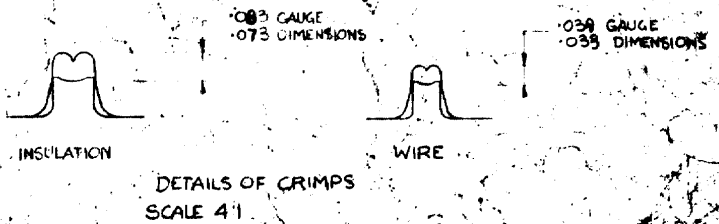 .083 GAUGE
.073 DIMENSIONS
.039 GAUGE
.033 DIMENSIONS
INSULATION
WIRE
DETAILS OF CRIMPS
SCALE 4:1